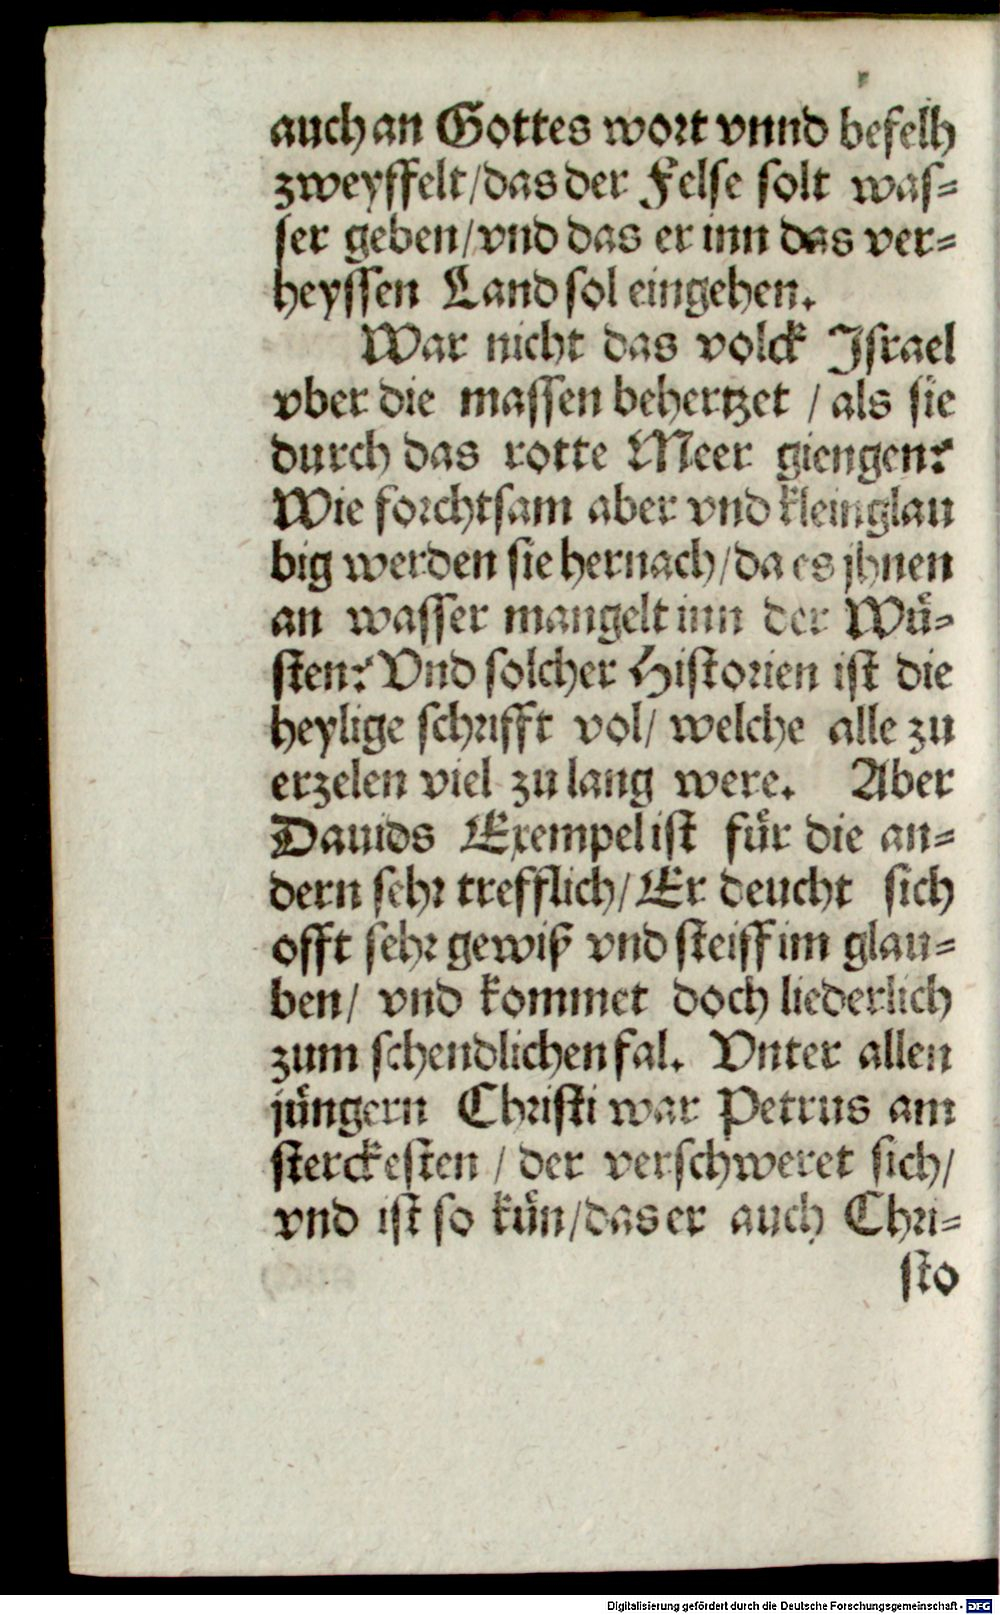 auch an Gottes wort vnnd befelh
zweyffelt/das der Felse solt was=
ser geben/vnd das er inn das ver=
heyssen Land sol eingehen.
War nicht das volck Israel
vber die massen behertzet / als sie
durch das rotte Meer giengen?
Wie forchtsam aber vnd kleinglau
big werden sie hernach/da es jhnen
an wasser mangelt inn der Wuͤ=
sten? Vnd solcher Historien ist die
heylige schrifft vol/ welche alle zu
erzelen viel zu lang were. Aber
Dauids Exempel ist fuͤr die an=
dern sehr trefflich/ Er deucht sich
offt sehr gewiß vnd steiff im glau=
ben/ vnd kommet doch liederlich
zum schendlichen fal. Vnter allen
juͤngern Christi war Petrus am
sterckesten / der verschweret sich/
vnd ist so kuͤn/das er auch Chri=
sto
Digitalisierung gefördert durch die Deutsche Forschungsgemeinschaft - DFG